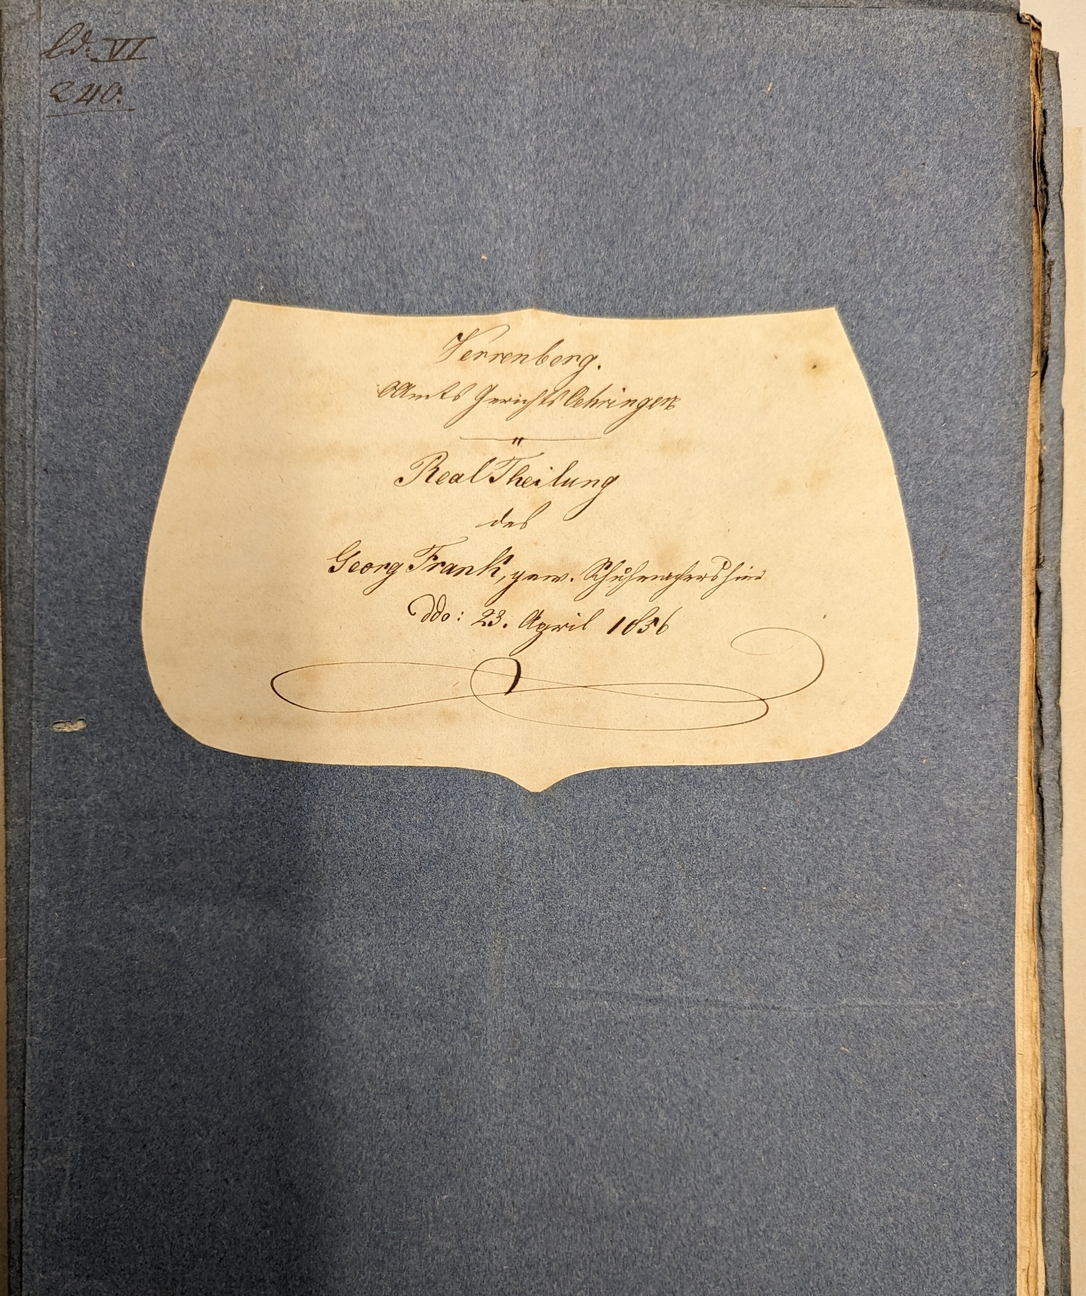 Bd. VI
240.
Verrenberg.
OAmts Gerichts Oehringen
Real Theilung
des
Georg Frank, gew. Schuhmachers hier
ddo: 23. April 1836